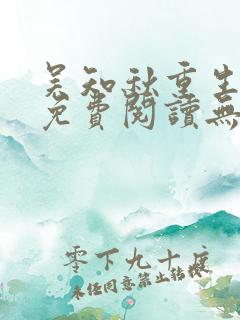 吴知秋重生
免費閱讀無
零下九十度
未经同意禁止转载